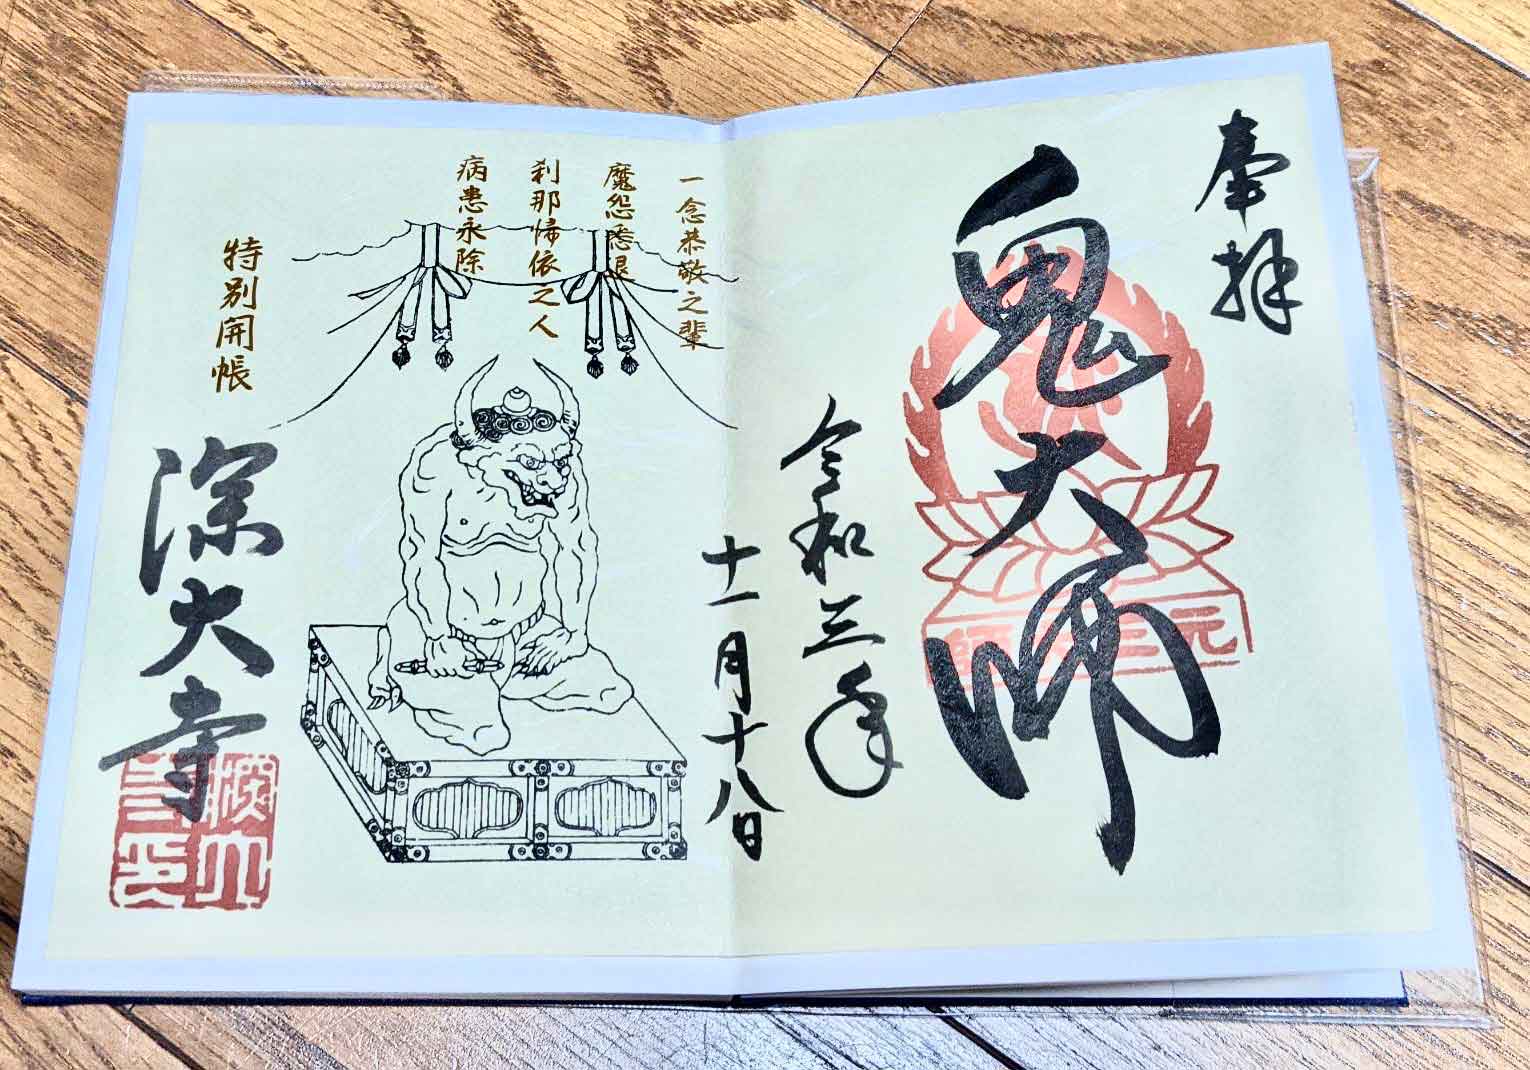 奉拝
鬼大師
元三大師
令和三年
十一月十八日
一念恭敬之輩
魔怨悉退
刹那帰依之人
病患永除
特別開帳
深大寺
深大寺印